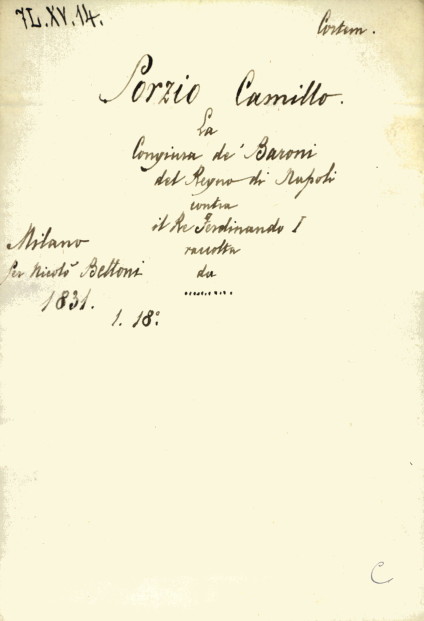 7L.XV.14.
Cortem.
Porzio Camillo.
La
Congiura de' Baroni
del Regno di Napoli
contra
il Re Ferdinando I
raccolta
da
.........
Milano
per Nicolò Bettoni
1831.
1. 18°.
C